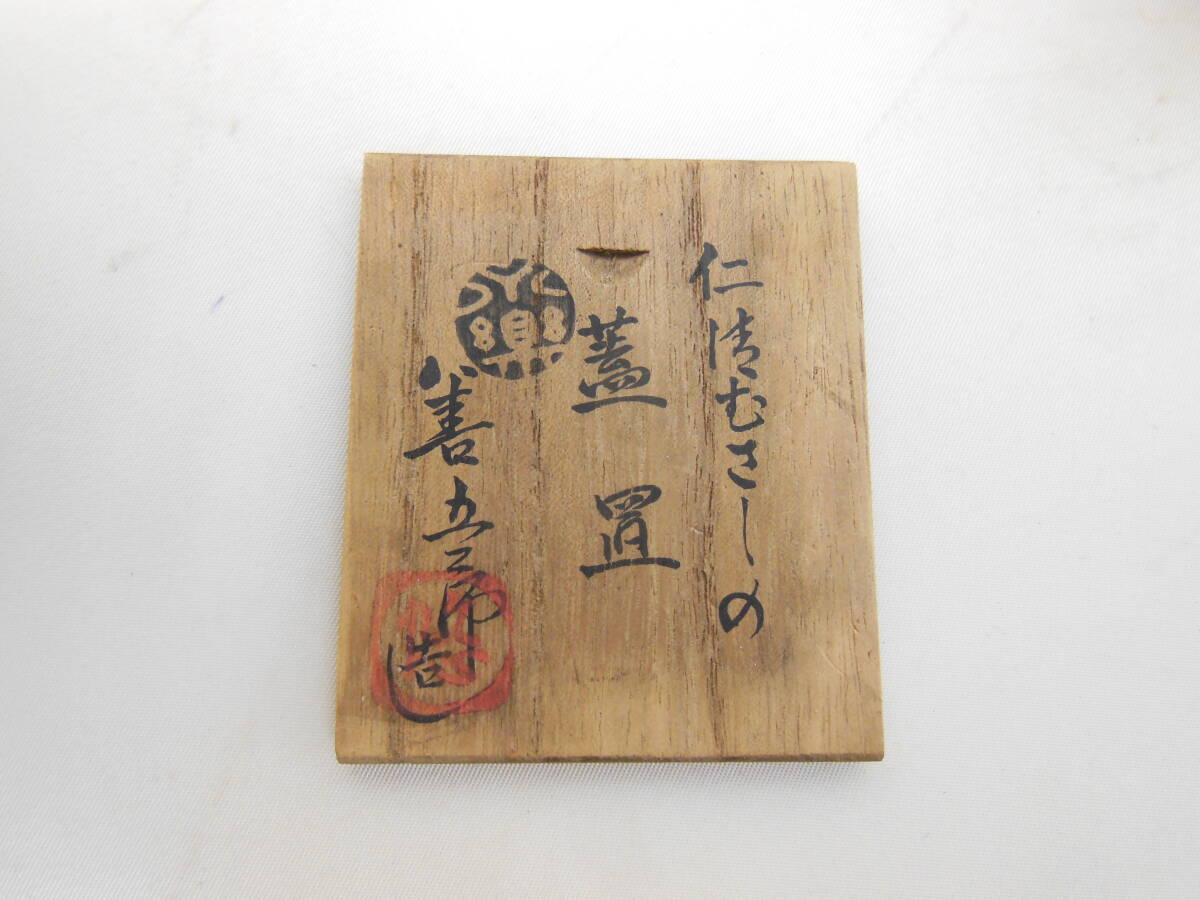 仁清むさしの
蓋置
善五郎造